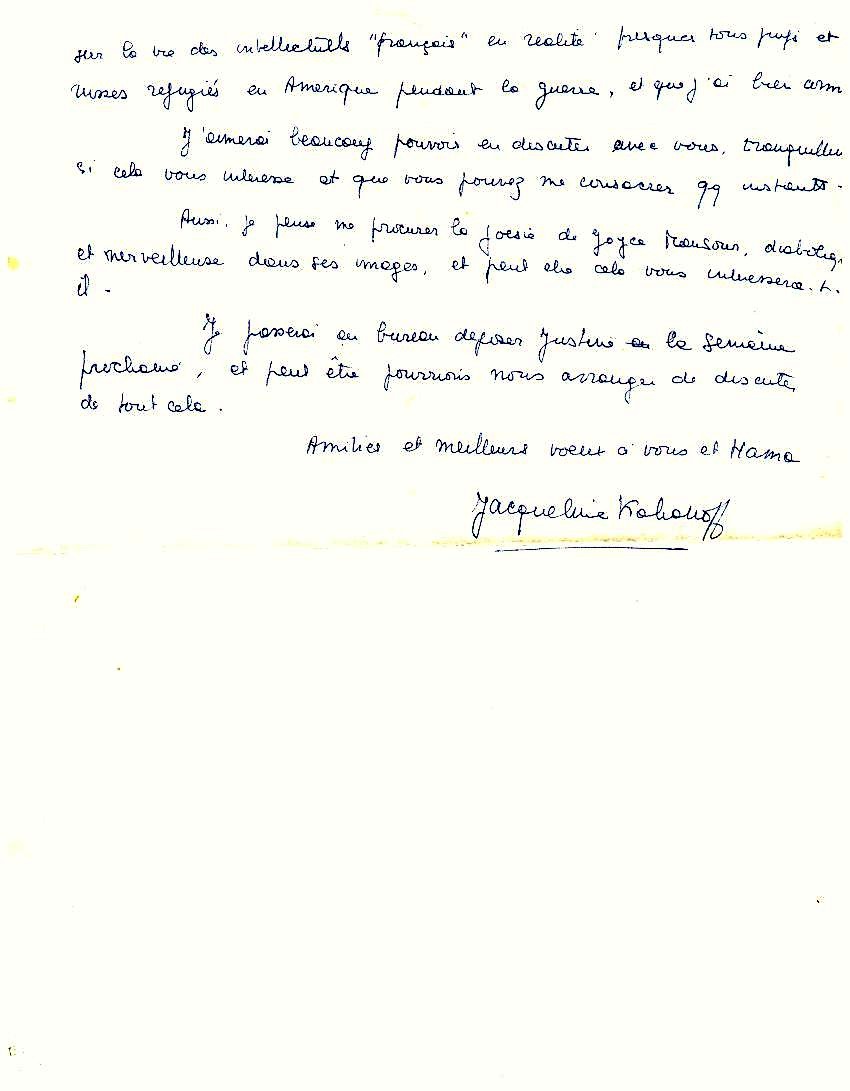 sur la vie des intellectuels "français" en realité presque tous juifs et
russes refugiés en Amerique pendant la guerre, et que j'ai bien
J'aimerai beaucoup pouvoir en discuter avec vous,
si cela vous interesse et que vous pouvez me consacrer qq instants -
Aussi, je pense me procurer la poesie de Joyce Mansour,
et merveilleuse dans ses images, et peut etre cela vous interessera-t-
il -
Je passerai au bureau deposer Justine la semaine
prochaine, et peut être pourrions nous arranger de discuter
de tout cela.
Amitiés et meilleurs voeux à vous et Hama
Jacqueline Kahanoff